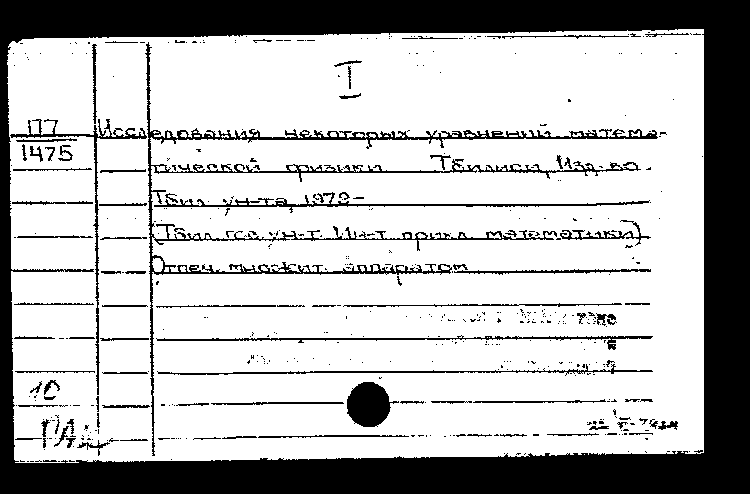 I
П7 Исследования некоторых уравнений матема-
1475 тической физики. Тбилиси, Изд-во
Тбил. ун-та, 1979-
(Тбил. гос. ун-т. Ин-т прикл. математики)
Отпеч. множит. аппаратом
10